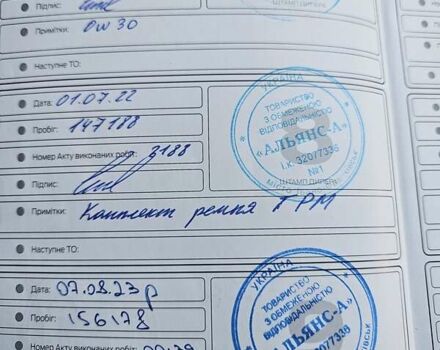 Підпис:
ШТАМП ДИЛЕРА
Примітки: 0W30
Наступне ТО:
Дата: 01.07.22
Пробіг: 147188
Номер Акту виконаних робіт: 3188
Підпис:
Примітки: Комплект ремня ГРМ
Наступне ТО:
УКРАЇНА
ТОВАРИСТВО
З ОБМЕЖЕНОЮ
ВІДПОВІДАЛЬНІСТЮ
«АЛЬЯНС-А»
І.К. 32077336
№1
ШТАМП ДИЛЕРА
Дата: 07.08.23р
Пробіг: 156178
Номер Акту виконаних робіт:
УКРАЇНА
ТОВАРИСТВО
З ОБМЕЖЕНОЮ
ВІДПОВІДАЛЬНІСТЮ
«АЛЬЯНС-А»
І.К. 32077336